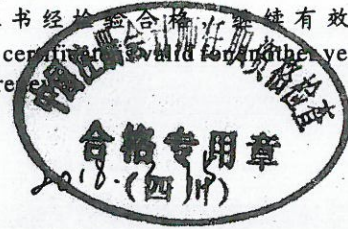 书经检验合格，继续有效
certificate is valid for another ye
中国注册会计师任职资格检查
合格专用章
2018.
(四川)